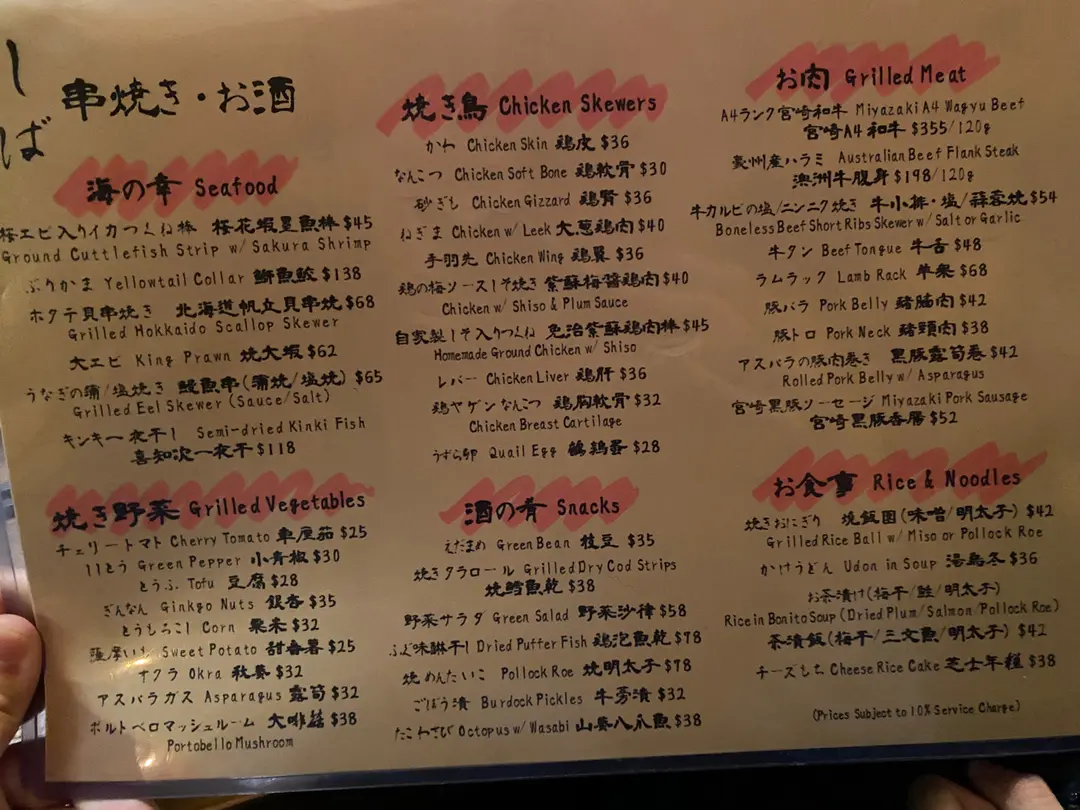 しば
串焼き・お酒
海の幸 Seafood
桜エビ入りイカつくね棒 桜花蝦墨魚棒 $45
Ground Cuttlefish Strip w/ Sakura Shrimp
ぶりかま Yellowtail Collar 鰤魚鮫 $138
ホタテ貝串焼き 北海道帆立貝串焼 $68
Grilled Hokkaido Scallop Skewer
大エビ King Prawn 焼大蝦 $62
うなぎの蒲/塩焼き 鰻魚串(蒲焼/塩焼) $65
Grilled Eel Skewer (Sauce/Salt)
キンキ一夜干し Semi-dried Kinki Fish
喜知次一夜干 $118
焼き野菜 Grilled Vegetables
チェリートマト Cherry Tomato 車厘茄 $25
ししとう Green Pepper 小青椒 $30
とうふ Tofu 豆腐 $28
ぎんなん Ginkgo Nuts 銀杏 $35
とうもろこし Corn 粟米 $32
薩摩いも Sweet Potato 甜番薯 $25
オクラ Okra 秋葵 $32
アスパラガス Asparagus 露荀 $32
ポルトベロマッシュルーム 大啡菇 $38
Portobello Mushroom
焼き鳥 Chicken Skewers
かわ Chicken Skin 鶏皮 $36
なんこつ Chicken Soft Bone 鶏軟骨 $30
砂ぎも Chicken Gizzard 鶏腎 $36
ねぎま Chicken w/ Leek 大葱鶏肉 $40
手羽先 Chicken Wing 鶏翼 $36
鶏の梅ソースしそ焼き 紫蘇梅醬鶏肉 $40
Chicken w/ Shiso & Plum Sauce
自家製しそ入りつくね 免治紫蘇鶏肉棒 $45
Homemade Ground Chicken w/ Shiso
レバー Chicken Liver 鶏肝 $36
鶏ヤゲンなんこつ 鶏胸軟骨 $32
Chicken Breast Cartilage
うずら卵 Quail Egg 鵪鶉蛋 $28
酒の肴 Snacks
えだまめ Green Bean 枝豆 $35
焼きタラロール Grilled Dry Cod Strips
焼鱈魚乾 $38
野菜サラダ Green Salad 野菜沙律 $58
ふぐ味醂干し Dried Puffer Fish 鶏泡魚乾 $78
焼めんたいこ Pollock Roe 焼明太子 $78
ごぼう漬 Burdock Pickles 牛蒡漬 $32
たこわさび Octopus w/ Wasabi 山葵八爪魚 $38
お肉 Grilled Meat
A4ランク宮崎和牛 Miyazaki A4 Wagyu Beef
宮崎A4和牛 $355/120g
豪州産ハラミ Australian Beef Flank Steak
澳洲牛腹身 $198/120g
牛カルビの塩/ニンニク焼き 牛小排・塩/蒜蓉焼 $54
Boneless Beef Short Ribs Skewer w/ Salt or Garlic
牛タン Beef Tongue 牛舌 $48
ラムラック Lamb Rack 羊架 $68
豚バラ Pork Belly 豬腩肉 $42
豚トロ Pork Neck 豬頸肉 $38
アスパラの豚肉巻き 黒豚露荀巻 $42
Rolled Pork Belly w/ Asparagus
宮崎黒豚ソーセージ Miyazaki Pork Sausage
宮崎黒豚香腸 $52
お食事 Rice & Noodles
焼きおにぎり 焼飯団(味噌/明太子) $42
Grilled Rice Ball w/ Miso or Pollock Roe
かけうどん Udon in Soup 湯烏冬 $36
お茶漬け(梅干/鮭/明太子)
Rice in Bonito Soup (Dried Plum/Salmon/Pollock Roe)
茶漬飯(梅干/三文魚/明太子) $42
チーズもち Cheese Rice Cake 芝士年糕 $38
(Prices Subject to 10% Service Charge)